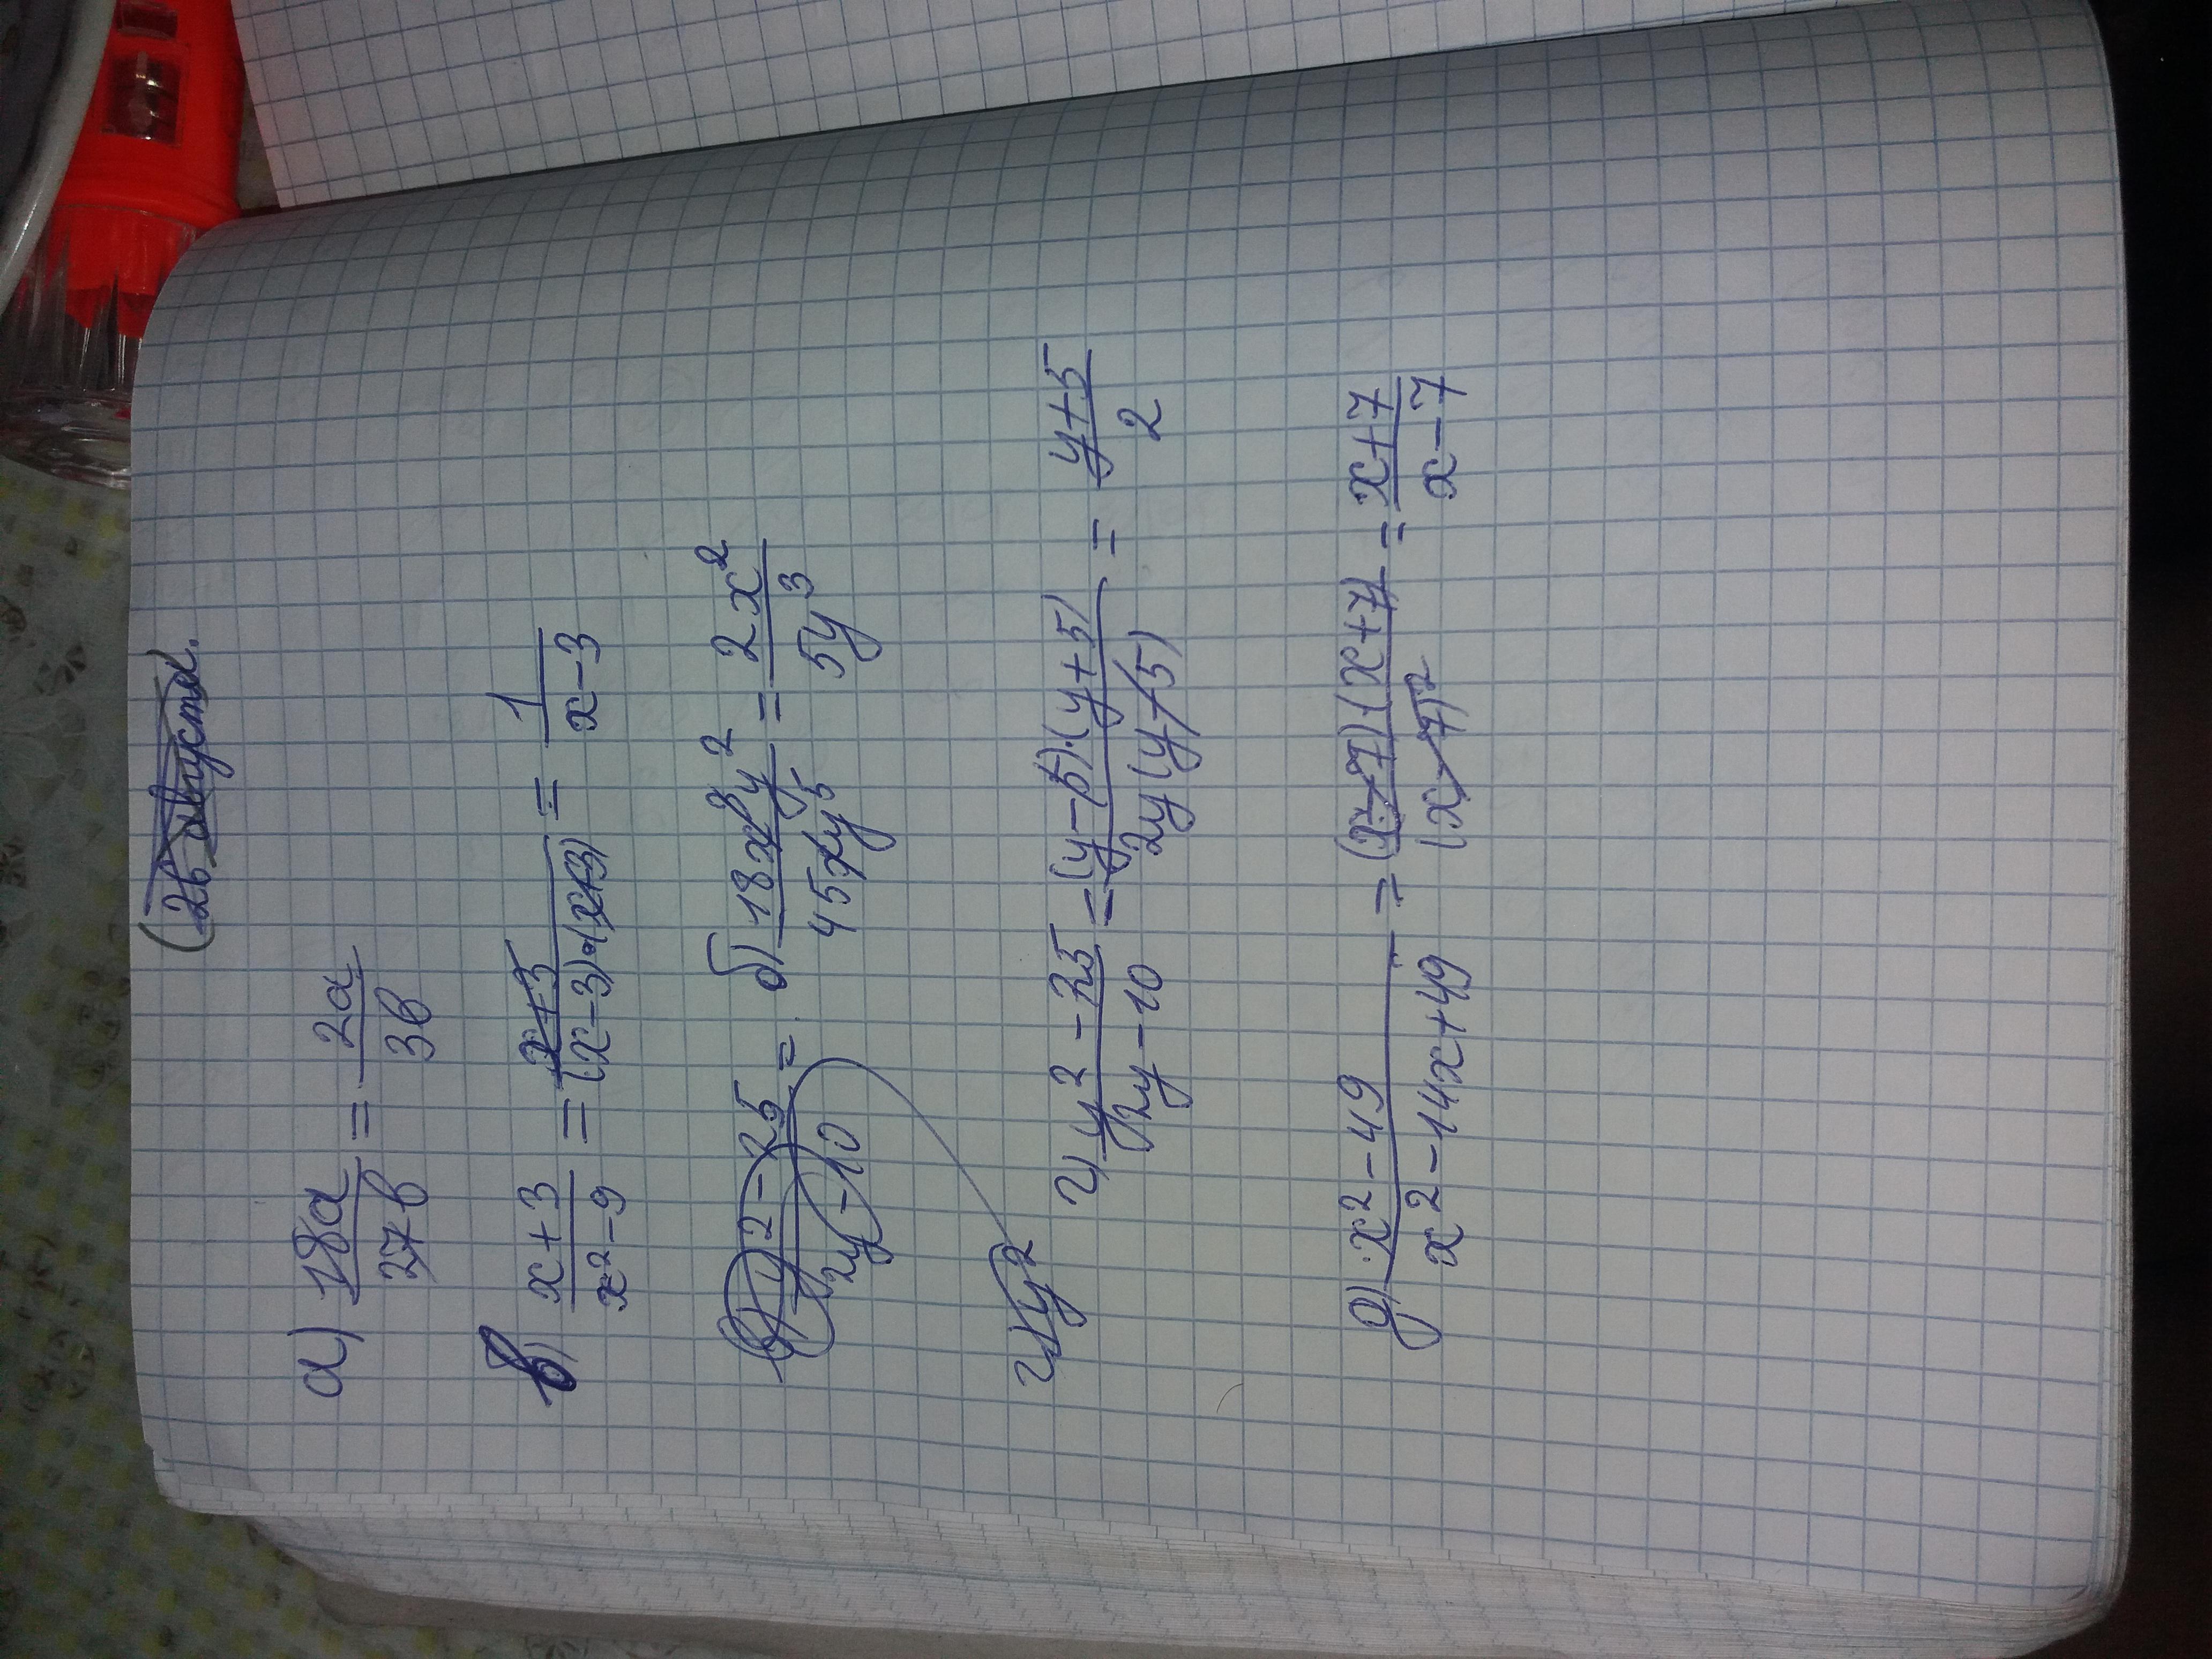 (26 августа.
а) 18a/27b = 2a/3b
в) x+3/x²-9 = x+3/(x-3)·(x+3) = 1/x-3
в) y²-25/2y-10 = . б) 18x³y²/45xy⁵ = 2x²/5y³
г) y²
г) y²-25/2y-10 = (y-5)·(y+5)/2y(y-5) = y+5/2
д) x²-49/x²-14x+49 = (x-7)(x+7)/(x-7)² = x+7/x-7